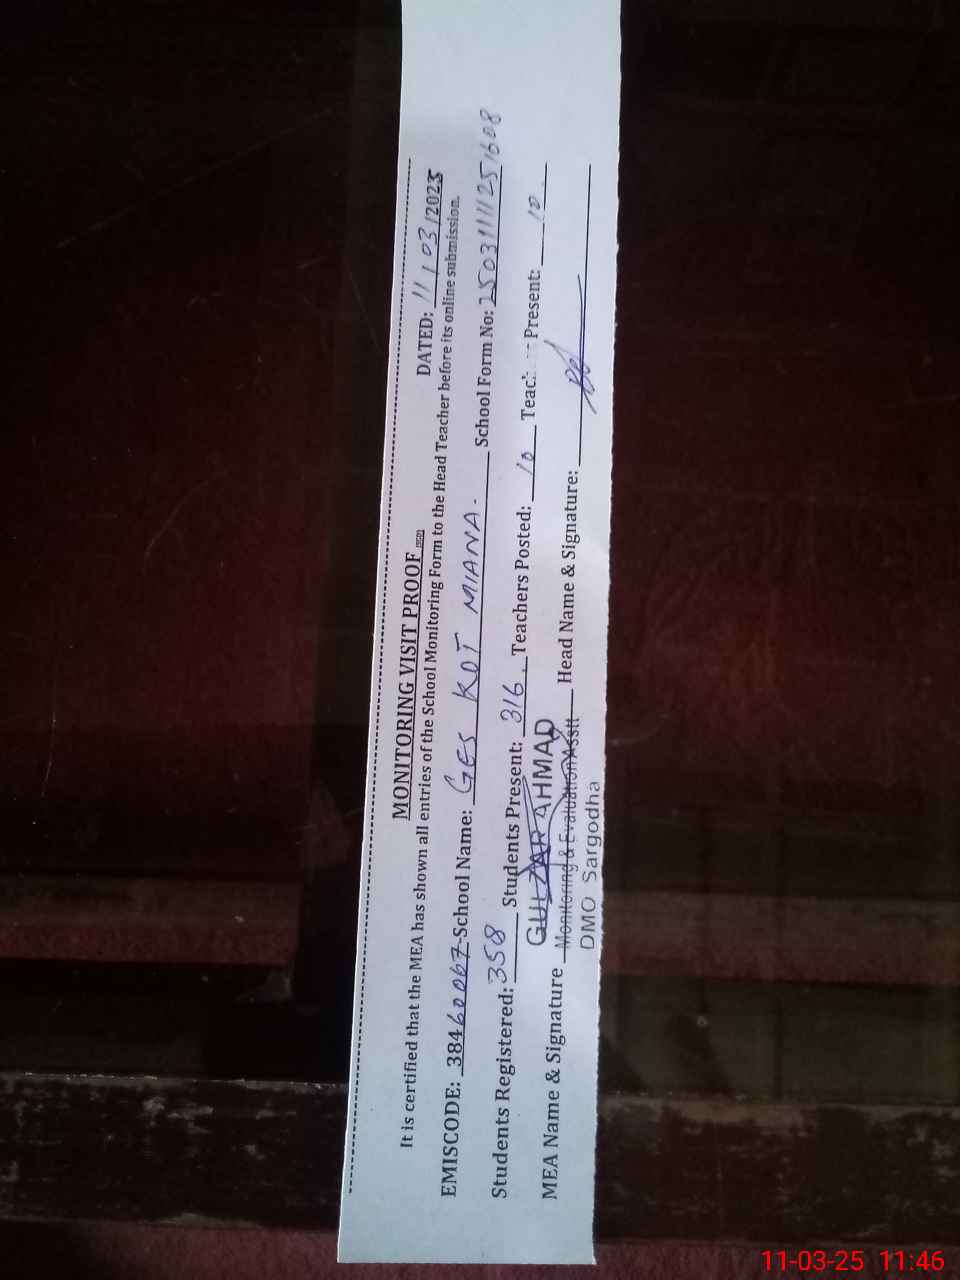 MONITORING VISIT PROOF
DATED: 11/03/2025
It is certified that the MEA has shown all entries of the School Monitoring Form to the Head Teacher before its online submission.
EMISCODE: 38460067 School Name: GES KOT MIANA. School Form No:
Students Registered: 358 Students Present: 316. Teachers Posted: 10 Present: 10
GULZAR AHMAD
MEA Name & Signature Monitoring & Evaluation Asstt Head Name & Signature:
DMO Sargodha
11-03-25 11:46